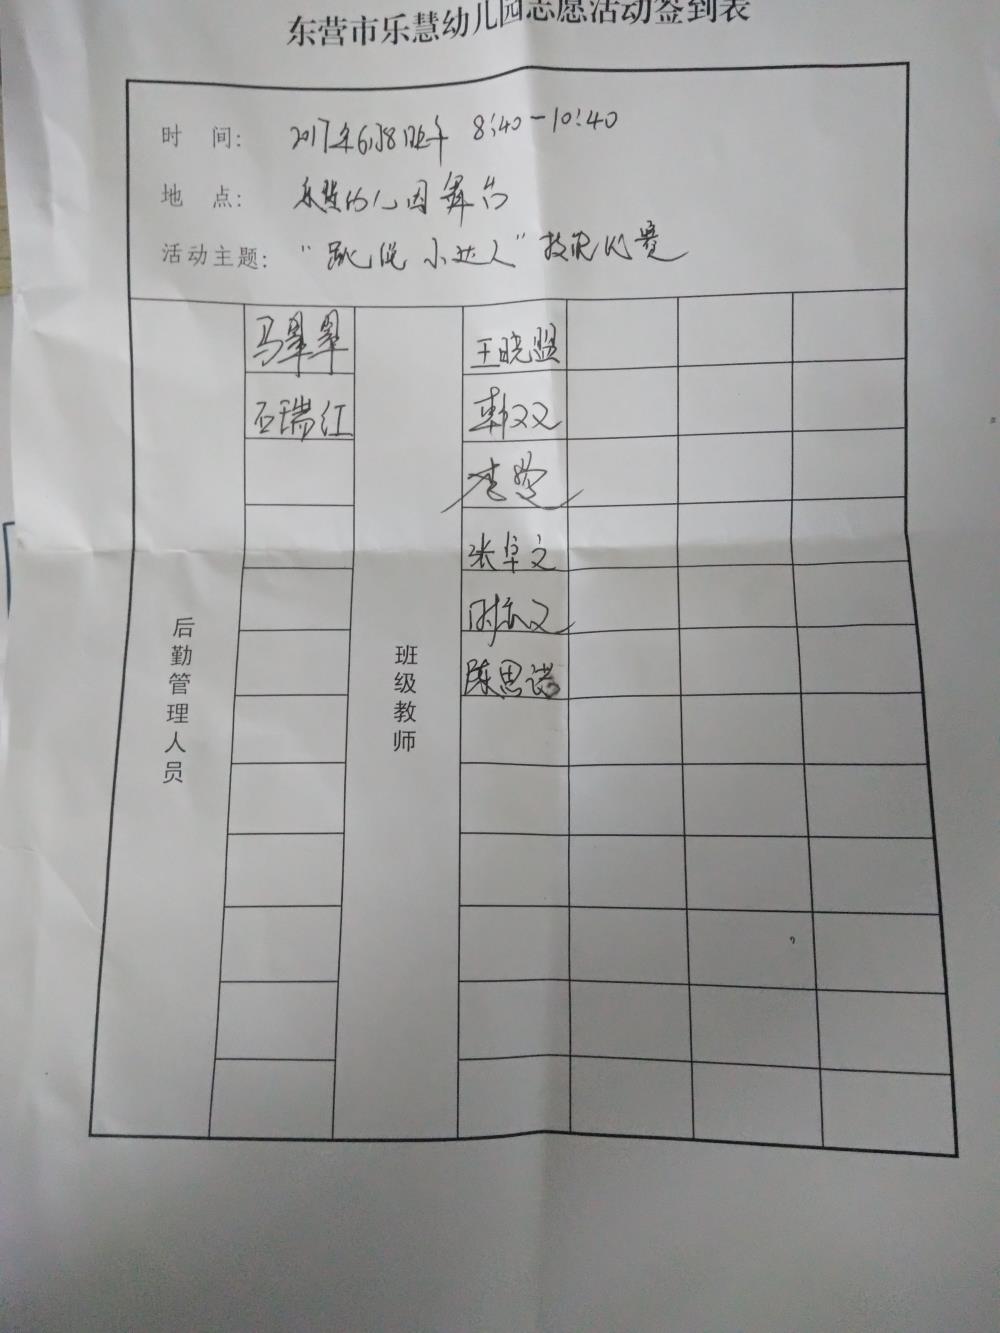 东营市乐慧幼儿园志愿活动签到表
时 间: 2017年6月8日上午 8:40-10:40
地 点: 乐慧幼儿园舞台
活动主题: "跳绳小达人"技能比赛
后勤管理人员
马翠翠
石瑞红
班级教师
王晓盟
韩双双
李莹
张卓文
陈思诺